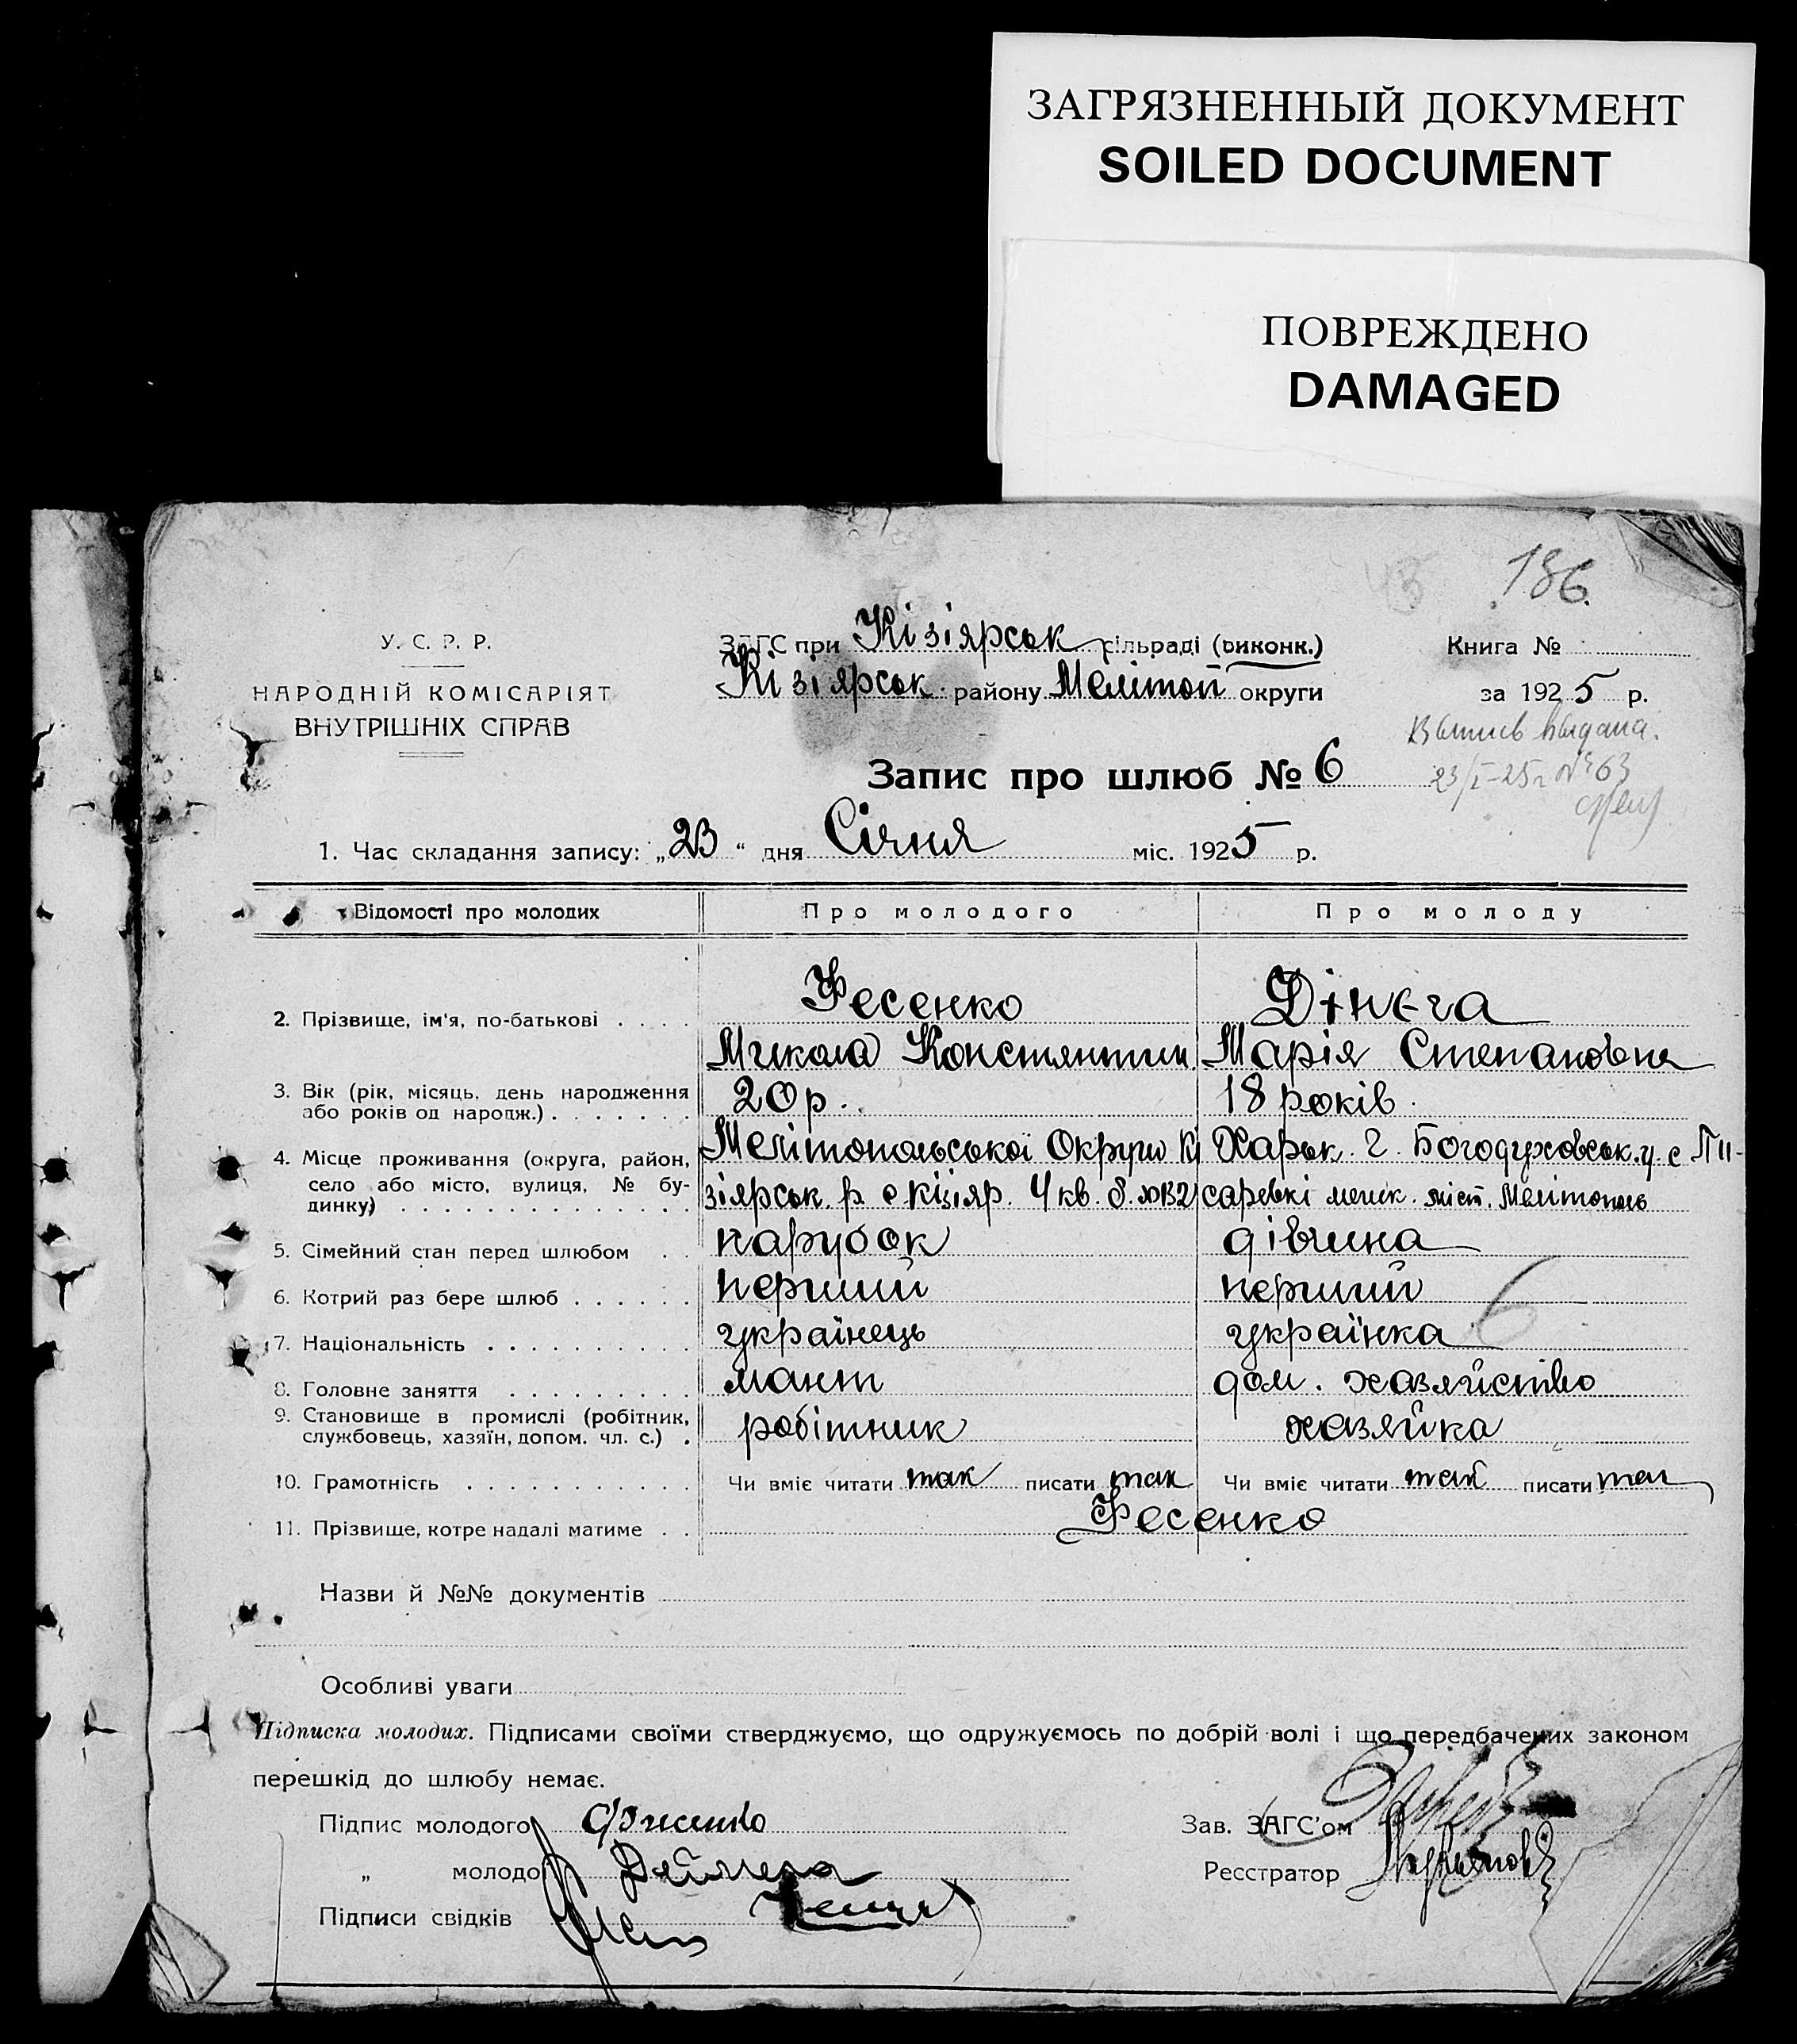 ЗАГРЯЗНЕННЫЙ ДОКУМЕНТ
SOILED DOCUMENT
ПОВРЕЖДЕНО
DAMAGED
186.
У. С. Р. Р.
НАРОДНІЙ КОМІСАРІЯТ
ВНУТРІШНІХ СПРАВ
ЗАГС при Кізіярськ сільраді (виконк.)
Кізіярськ. району Мелітоп округи
Книга №
за 1925 р.
Выпись выдана.
23/I-25 г №63
Запис про шлюб № 6
1. Час складання запису: „23“ дня Січня міс. 1925 р.
Відомості про молодих Про молодого Про молоду
2. Прізвище, ім'я, по-батькові . . . . Фесенко Дінега
Микола Констянтин. Марія Степановна
3. Вік (рік, місяць, день народження або років од народж.) . . . . . . . 20 р. 18 років.
4. Місце проживання (округа, район, Мелітопольської Округи Кі Харьк. г. Богодуховськ. у. с Пи-
село або місто, вулиця, № бу- зіярськ. р. с Кізіяр. 4 кв. д. №132 саревкі мешк. міст. Мелітополь
динку) . . . . . . . . . . . . . .
5. Сімейний стан перед шлюбом . . парубок дівчина
6. Котрий раз бере шлюб . . . . . . перший перший 6
7. Національність . . . . . . . . . . українець українка
8. Головне заняття . . . . . . . . . монт дом. хазяйство
9. Становище в промислі (робітник,
службовець, хазяїн, допом. чл. с.) . робітник хазяйка
10. Грамотність . . . . . . . . . . . Чи вміє читати так писати так Чи вміє читати так писати так
11. Прізвище, котре надалі матиме . . Фесенко
Назви й №№ документів
Особливі уваги
Підписка молодих. Підписами своїми стверджуємо, що одружуємось по добрій волі і що передбачених законом
перешкід до шлюбу немає.
Підпис молодого Фисенко Зав. ЗАГС'ом
„ молодої Реєстратор
Підписи свідків